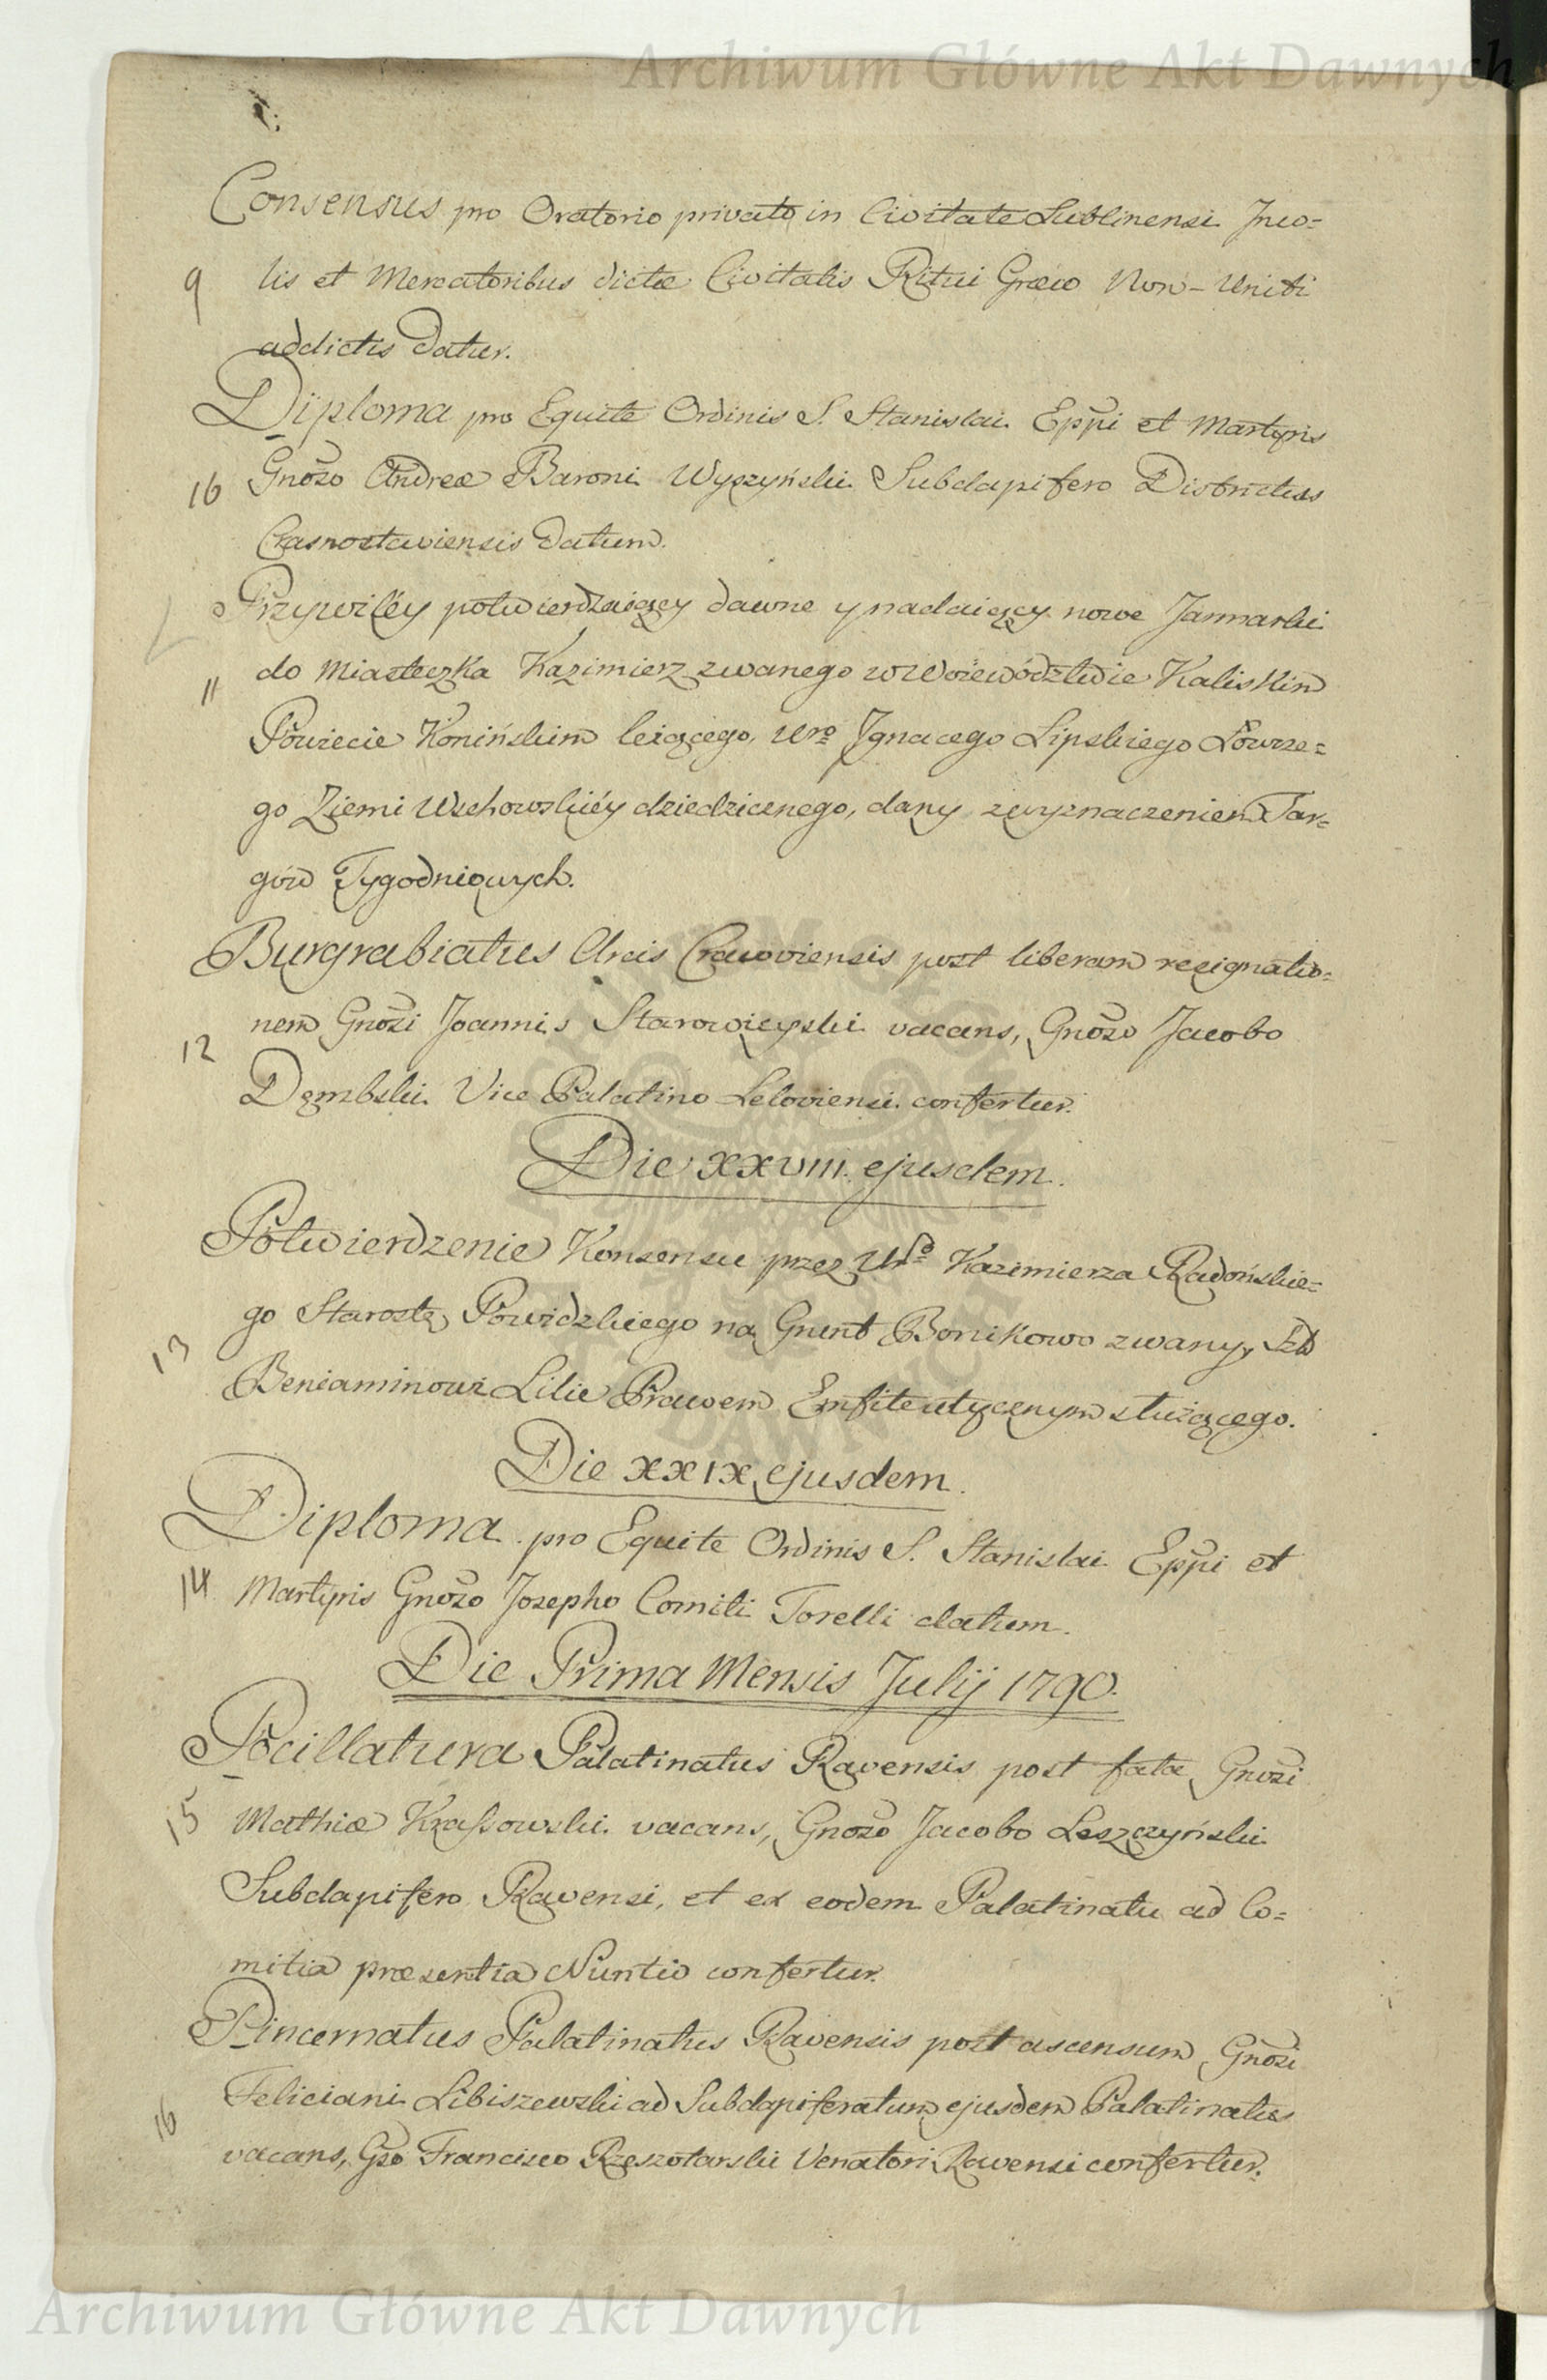 Archiwum Główne Akt Dawnych
Consensus pro Oratorio privato in Civitate Lublinensi Inco=
9 lis et Mercatoribus dictæ Civitatis Ritui Græco Non-Uniti
addictis datur.
Diploma pro Equite Ordinis S. Stanislai Eppi et Martyris
10 Gnoso Andreæ Baroni Wyszyński Subdapifero Districtus
Crasnostaviensis datum.
Przywiléy potwierdzaiący dawne y nadaiący nowe Jarmarki
do Miasteczka Kazimierz zwanego w Woiewództwie Kaliskim
11 Powiecie Konińskim leżącego, Uro Jgnacego Lipskiego Łowcze=
go Ziemi Wschowskiéy dziedzicznego, dany z wyznaczeniem Tar=
gów Tygodniowych.
Burgrabiatus Arcis Cracoviensis post liberam resignatio=
nem Gnosi Joannis Starowieyski vacans, Gnoso Jacobo
12 Dęmbski Vice Palatino Leloviensi confertur.
Die XXVIII. ejusdem.
Potwierdzenie Konsensu przez Uro Kazimierza Radońskie=
go Starostę Powidzkiego na Grunt Bonikowo zwany,
13 Beniaminowi Lilie Prawem Emfiteutycznym służącego.
Die XXIX ejusdem.
Diploma pro Equite Ordinis S. Stanislai Eppi et
14 Martyris Gnoso Josepho Comiti Torelli datum.
Die Prima Mensis Julij 1790.
Pocillatura Palatinatus Ravensis post fata Gnosi
15 Mathiæ Kraſsowski vacans, Gnoso Jacobo Leszczyński
Subdapifero Ravensi, et ex eodem Palatinatu ad Co=
mitia præsentia Nuntio confertur.
Pincernatus Palatinatus Ravensis post ascensum Gnosi
16 Feliciani Libiszewski ad Subdapiferatum ejusdem Palatinatus
vacans, Gso Francisco Rzeszotarski Venatori Ravensi confertur.
Archiwum Główne Akt Dawnych